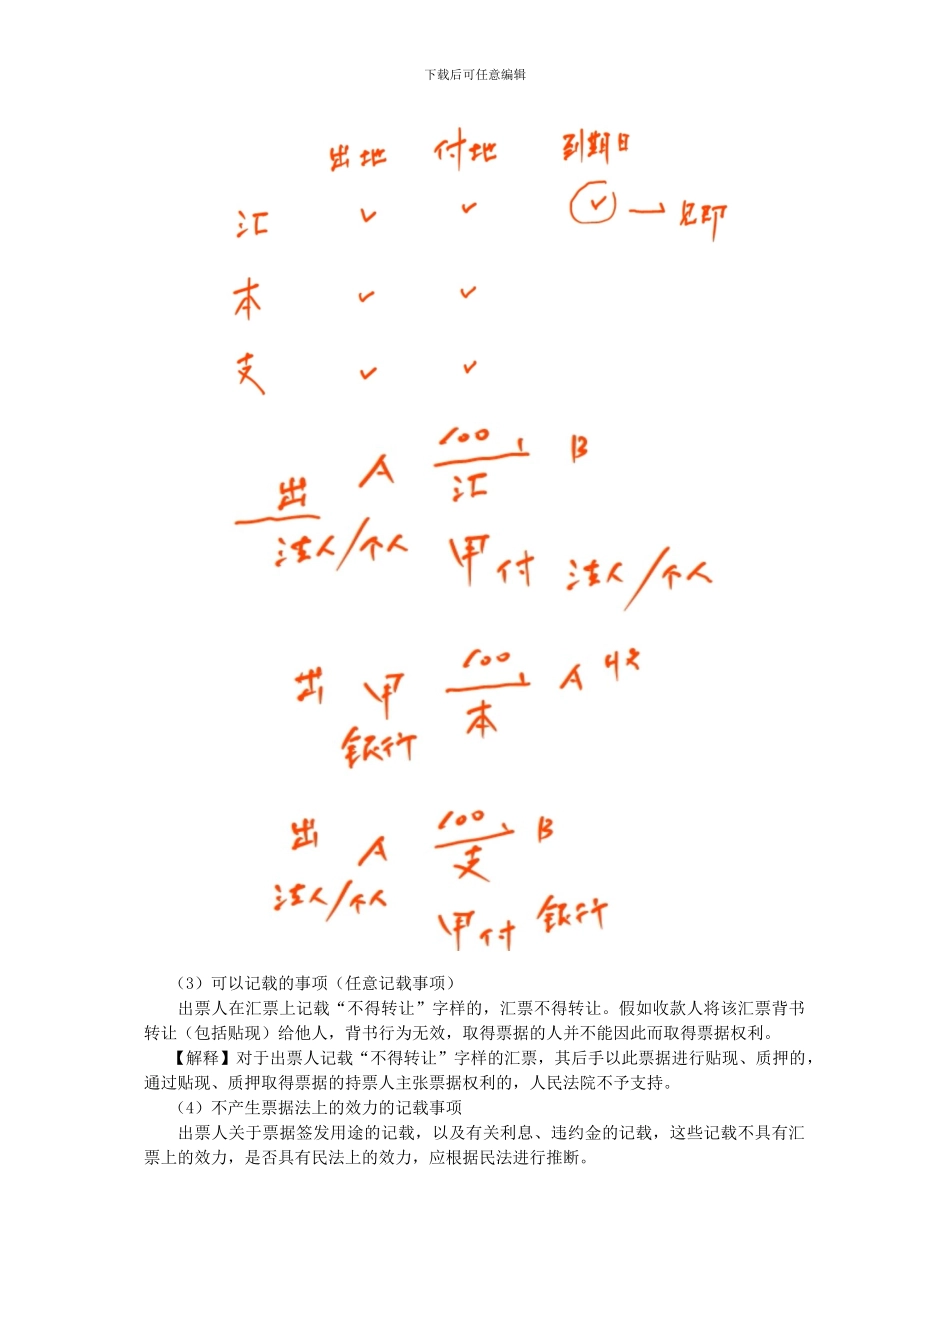 下载后可任意编辑
出地 付地 到期日
汇 ✓ ✓ ✓ → 见即
本 ✓ ✓
支 ✓ ✓
出 A 100 B
汇
法人/个人 甲 付 法人/个人
出 甲 100 A 收
本
银行
出 A 100 B
支
法人/个人
甲 付 银行
（3）可以记载的事项（任意记载事项）
出票人在汇票上记载“不得转让”字样的，汇票不得转让。假如收款人将该汇票背书
转让（包括贴现）给他人，背书行为无效，取得票据的人并不能因此而取得票据权利。
【解释】对于出票人记载“不得转让”字样的汇票，其后手以此票据进行贴现、质押的，
通过贴现、质押取得票据的持票人主张票据权利的，人民法院不予支持。
（4）不产生票据法上的效力的记载事项
出票人关于票据签发用途的记载，以及有关利息、违约金的记载，这些记载不具有汇
票上的效力，是否具有民法上的效力，应根据民法进行推断。